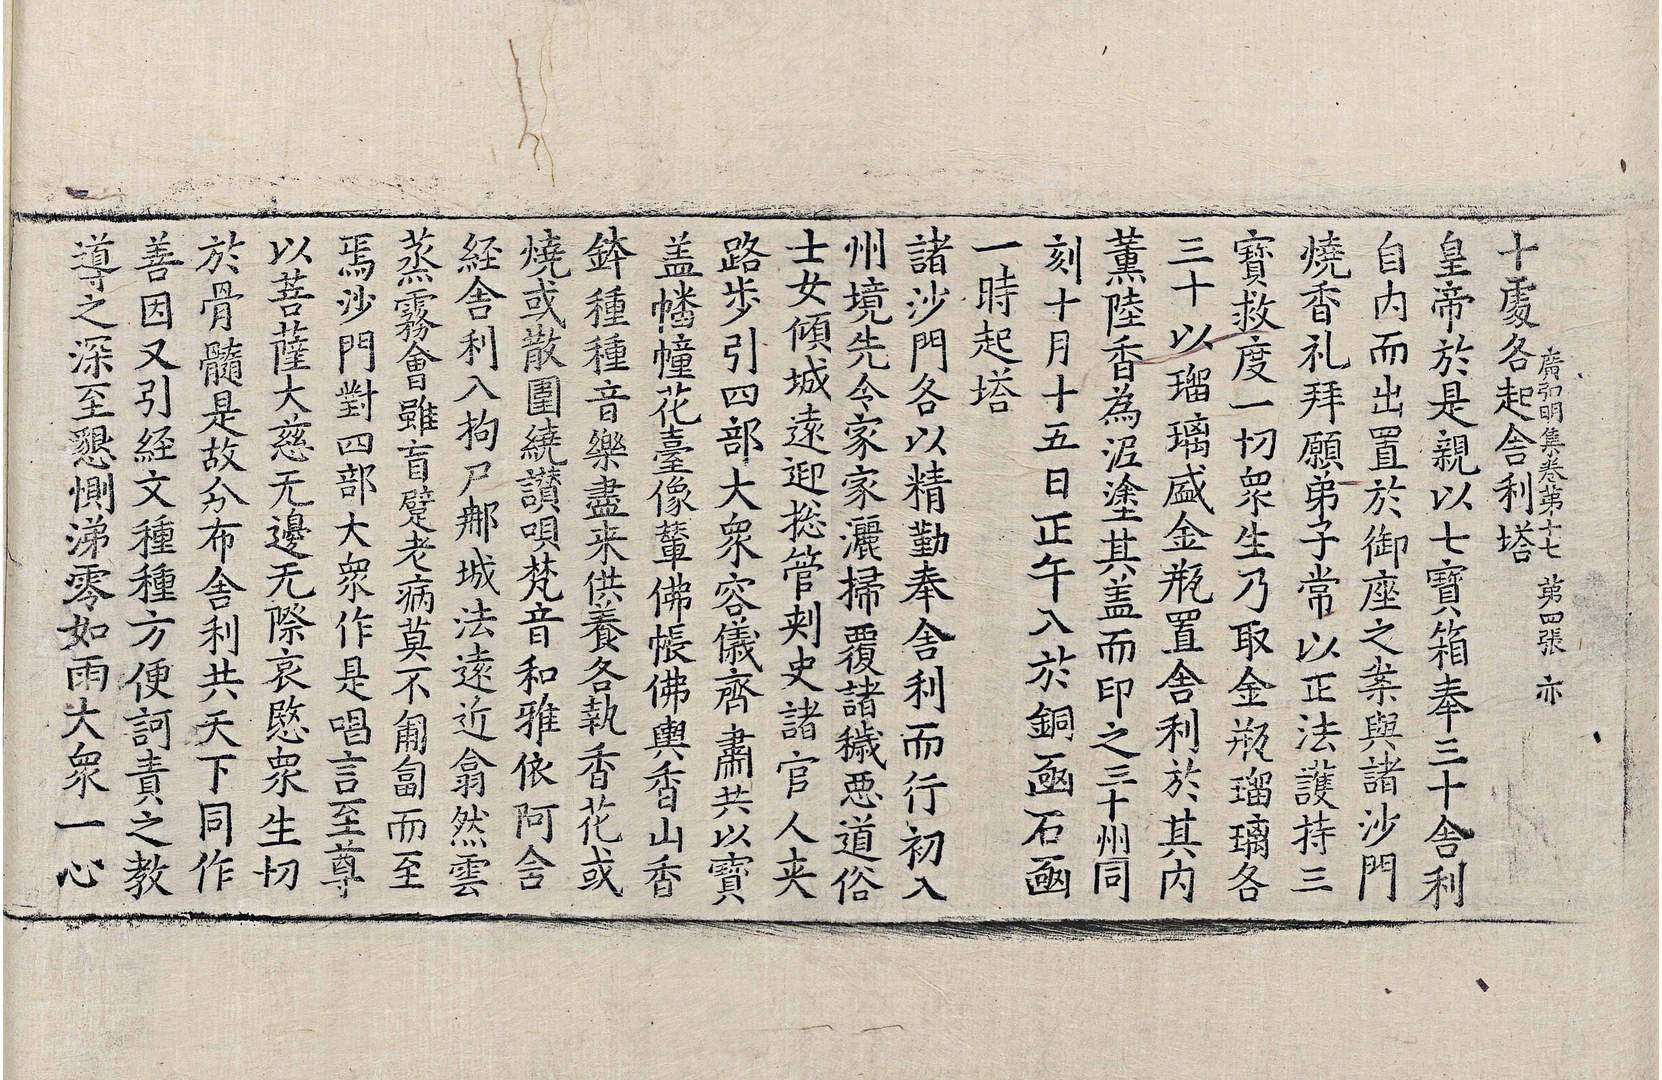 廣弘明集卷第十七　第四張　亦
十處各起舍利塔
皇帝於是親以七寶箱奉三十舍利
自内而出置於御座之案與諸沙門
燒香礼拜願弟子常以正法護持三
寶救度一切衆生乃取金瓶瑠璃各
三十以瑠璃盛金瓶置舍利於其内
薰陸香為泥塗其盖而印之三十州同
刻十月十五日正午入於銅凾石凾
一時起塔
諸沙門各以精勤奉舍利而行初入
州境先令家家灑掃覆諸穢惡道俗
士女傾城遠迎揔管刺史諸官人夾
路步引四部大衆容儀齊肅共以寶
盖幡幢花臺像輦佛帳佛輿香山香
鉢種種音樂盡来供養各執香花或
燒或散圍繞讃唄梵音和雅依阿含
経舍利入拘尸那城法遠近翕然雲
蒸霧會雖盲躄老病莫不匍匐而至
焉沙門對四部大衆作是唱言至尊
以菩薩大慈无邊无際哀愍衆生切
於骨髓是故分布舍利共天下同作
善因又引経文種種方便訶責之教
導之深至懇惻涕零如雨大衆一心